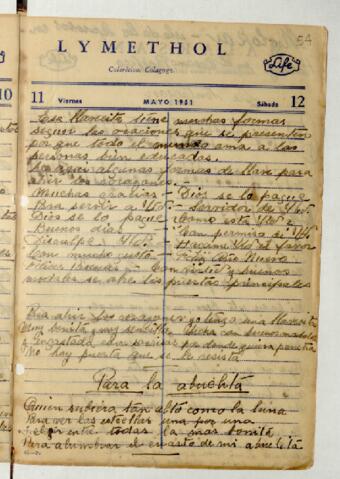 54
LYMETHOL
Colerético, Colagogo
Life
11 Viernes MAYO, 1951 Sábado 12
Esa llavecita tiene muchas formas
segun las ocasiones que se presenten
por que todo el mundo ama a las
personas bien educadas.
algunas formas de llave para
abrir los corazones.
Muchas gracias - Dios se lo pague
Para servir a Ud - Servidor de Ud
Dios se lo pague - Como está Ud?
Buenos días - Con permiso de Ud
Disculpe Ud - Hágame Ud el favor
Con mucho gusto - Feliz Año Nuevo
Felices Pascuas - Con virtud y buenos
modales se abre las puertas principales
Para abrir los corazones yo tengo una llavecita
Muy bonita y muy sencilla hecha con buenos modales
y por donde quiera penetra
No hay puerta que se le resista
Para la abuelita
Quien subiera tan alto como la luna
Para ver las estrellas una por una
entre todas la mas bonita
Para alumbrar el cuarto de mi abuelita